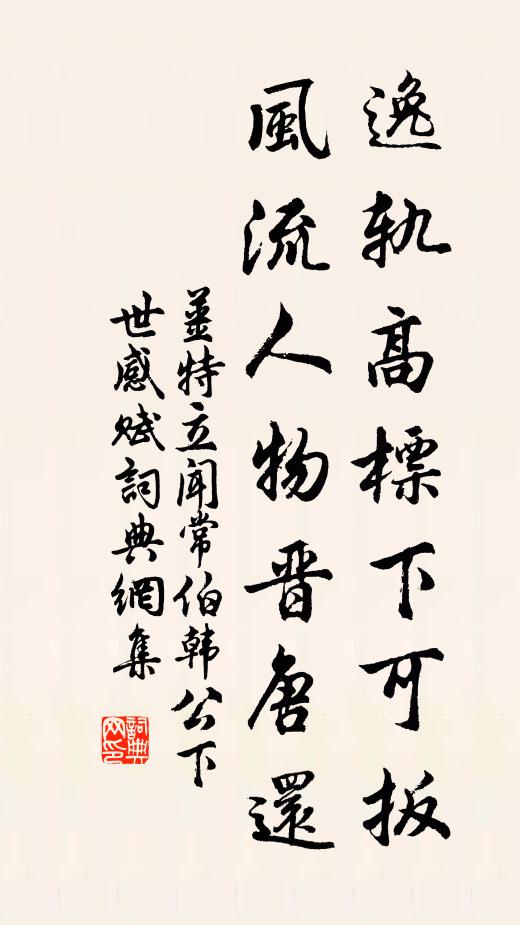 逸軌高標下可扳
風流人物晋唐還
薑特立聞常伯韩公下
世感赋詞典網集
詞典
网印